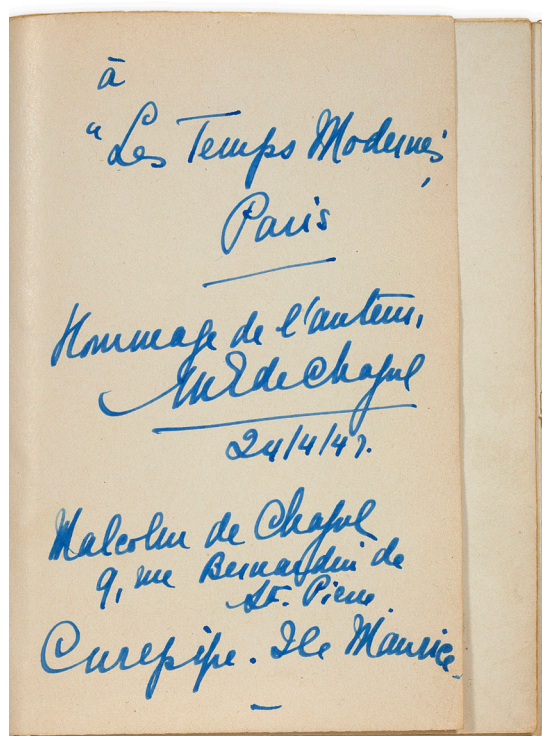 à
"Les Temps Modernes,
Paris
Hommage de l'auteur,
M de Chazal
24/4/47.
Malcolm de Chazal
9, rue Bernardin de
St. Pierre.
Curepipe. Ile Maurice.